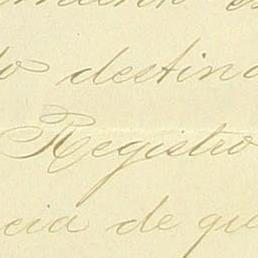 do destina
Registro
cia de que